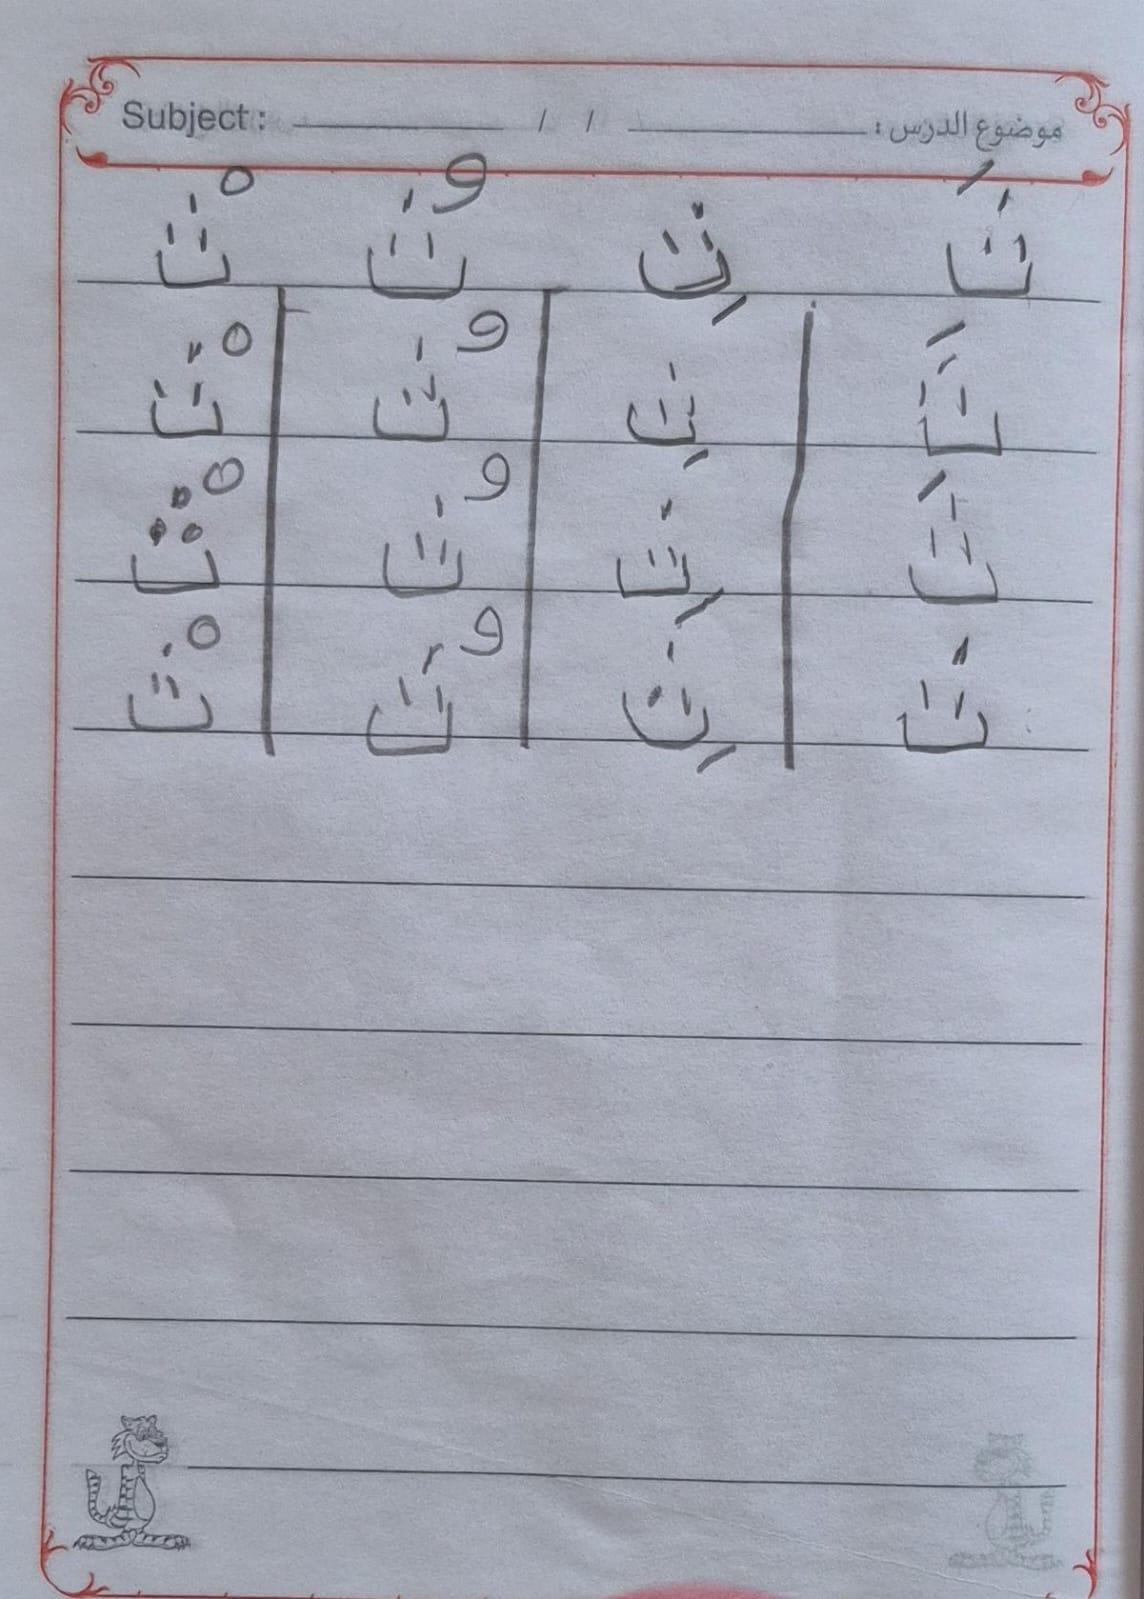 Subject : / / موضوع الدرس :
ثَ ثِ ثُ ثْ
ثَ ثِ ثُ ثْ
ثَ ثِ ثُ ثْ
ث ثِ ثُ ثْ